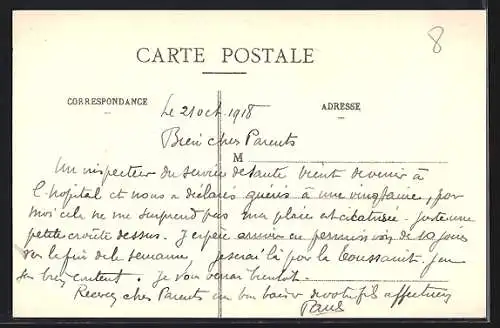 8
CARTE POSTALE
CORRESPONDANCE
ADRESSE
Le 21 oct. 1918
Bien chers Parents
M
Un inspecteur du service de santé vient de venir à
l'hopital et nous a déclarés guéris à une vingtaine, pour
moi cela ne me surprend pas ma plaie est cicatrisée. juste une
petite croûte dessus. J'espère arriver en permission de 10 jours
vers la fin de la semaine, je serai là pour la Toussaint. j'en
suis bien content. Je vous verrai bientôt.
Recevez chers Parents un bon baiser de votre fils affectueux
Paul